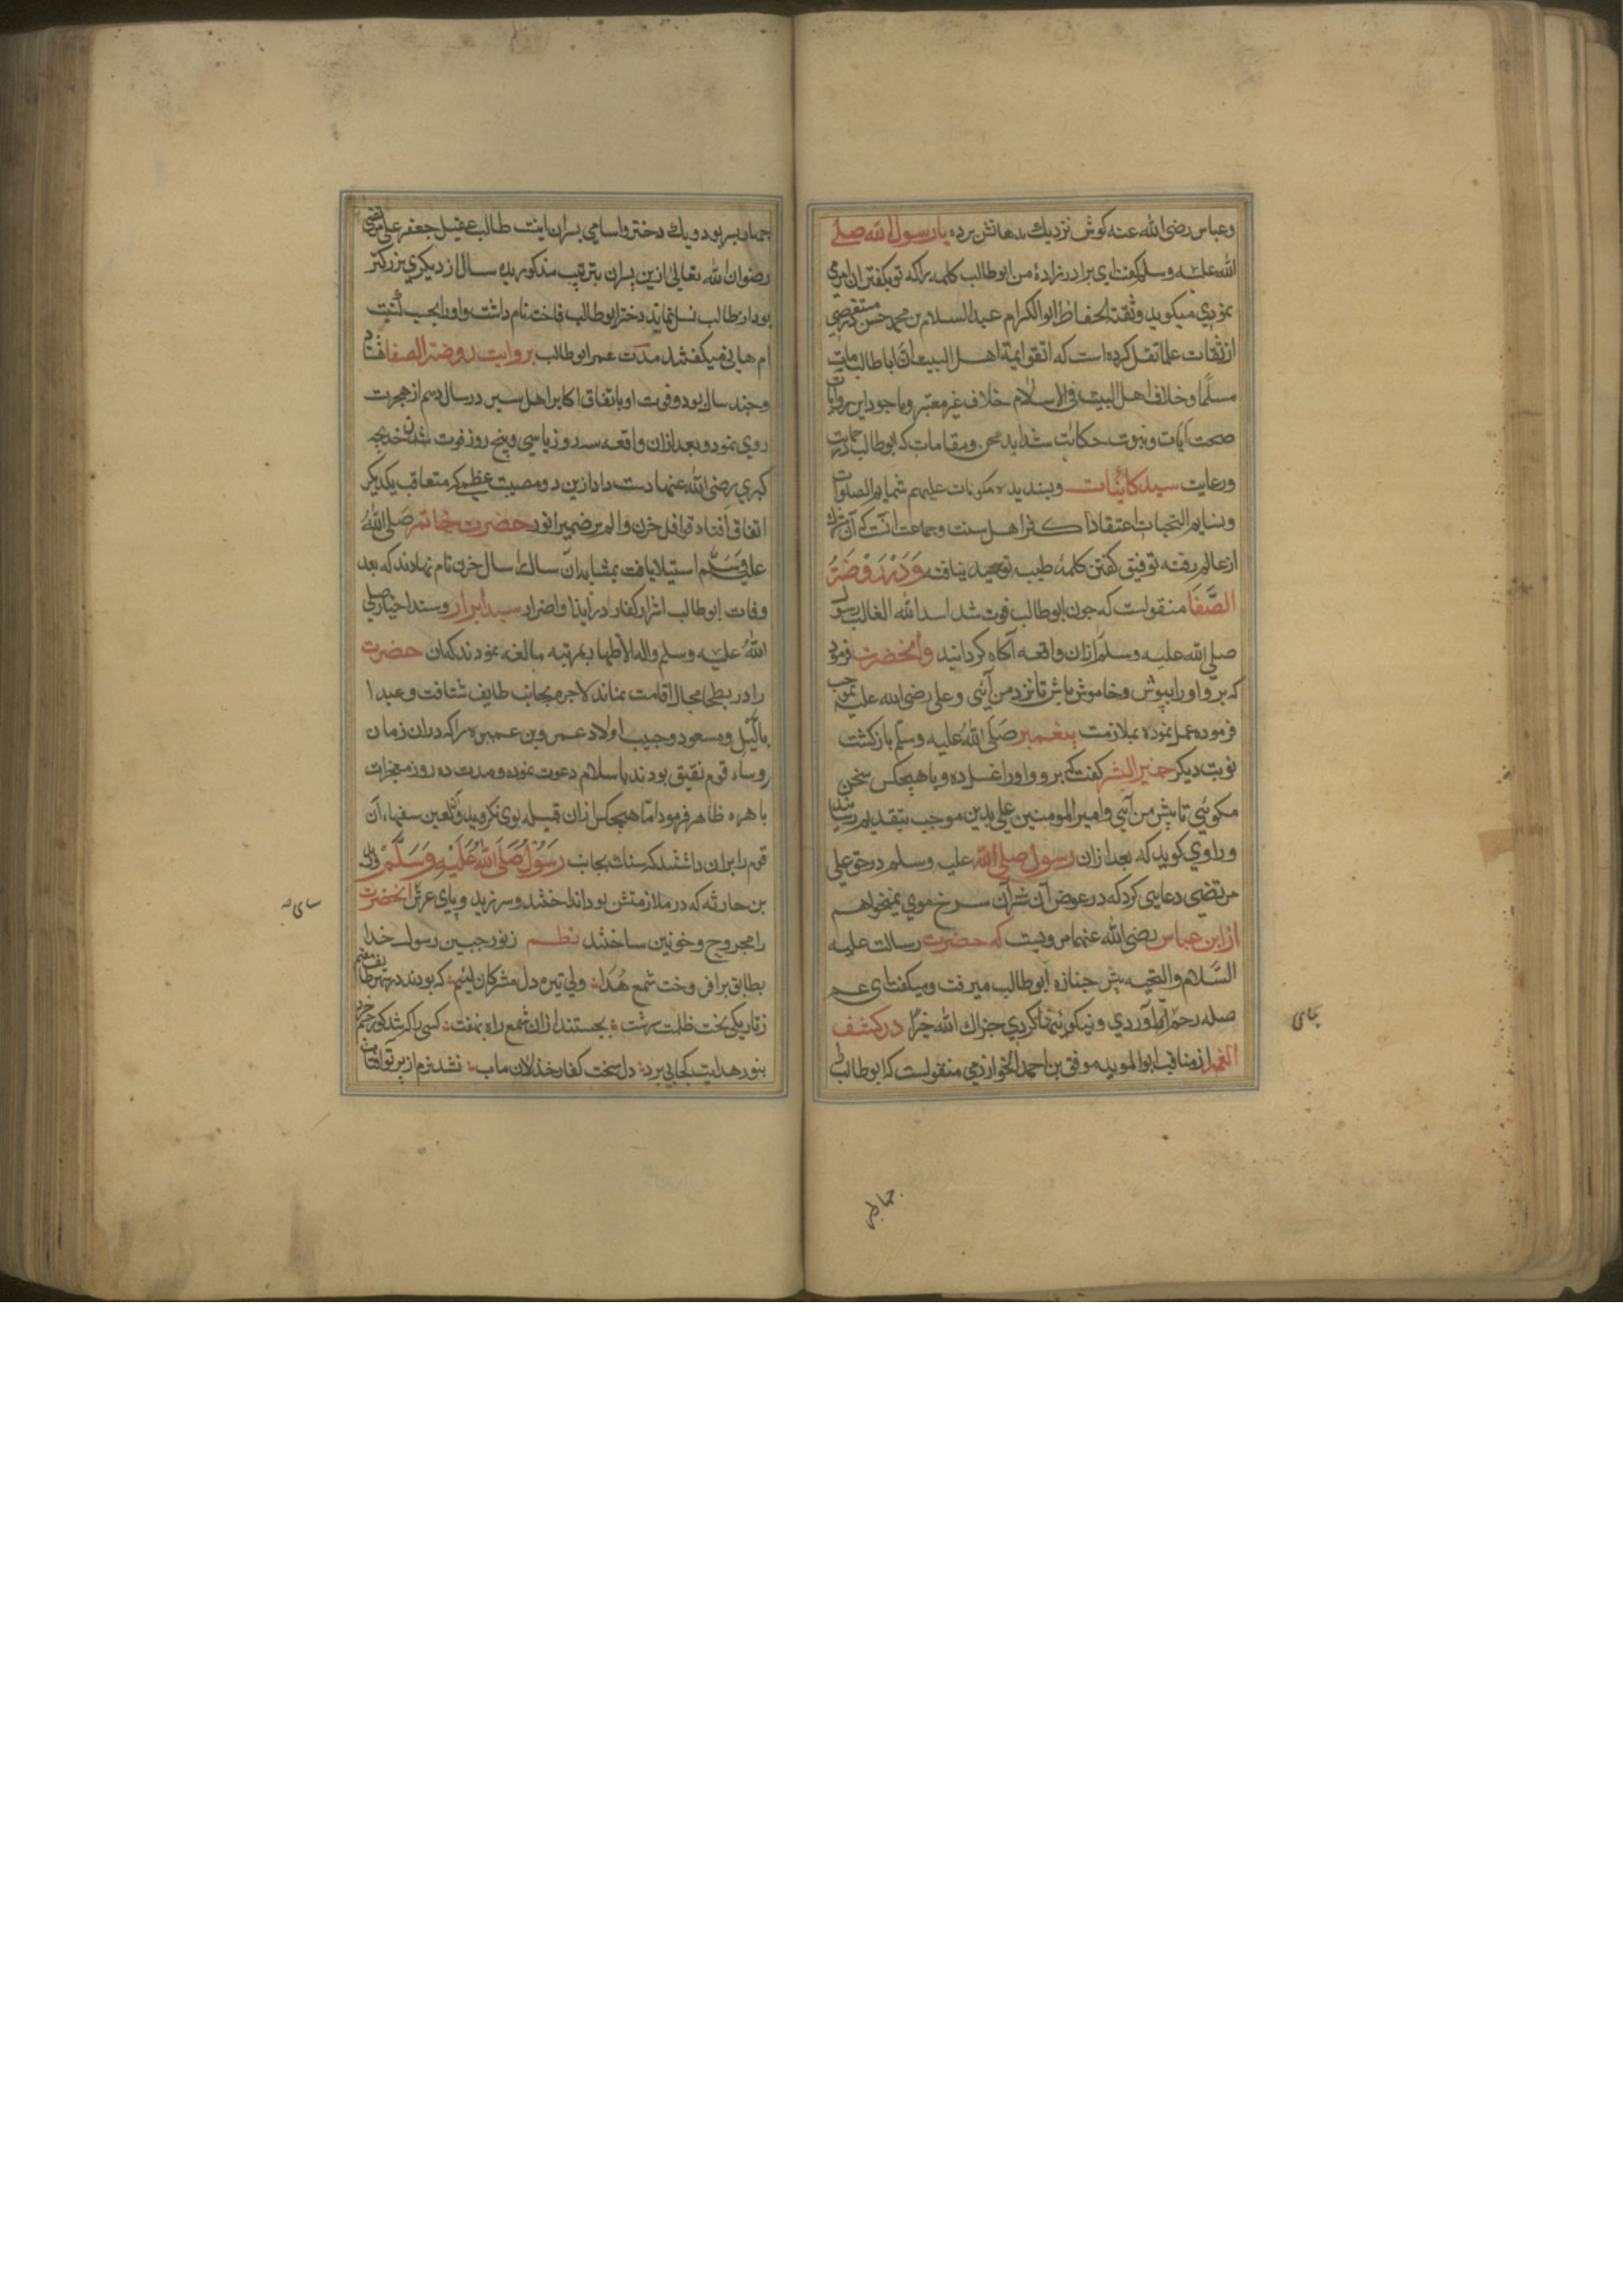 وعباس رضی الله عنه کوش نزدیك بدهانش برده یا رسول الله صلی
الله علیه وسلم کفت ای برادرزادهٔ من ابوطالب کلمه را که تو بکفتن آن امر می
نمودی میکوید وثقة الحفاظ ابوالکرام عبدالسلام بن محمد حسن
از ثقات علما نقل کرده است که اتفق ایمة اهل البیت ان اباطالب مات
مسلما وخلاف اهل البیت فی الاسلام خلاف غیر معتبر وباجود این روایات
صحت آیات وثبوت حکایت شداید محن ومقامات که ابوطالب در حمایت
ورعایت سید کائنات وپسندیده مکونات علیهم شمایم الصلوات
ونسایم التحیات اعتقاد اکثر اهل سنت وجماعت آنست که
از عالم رفته توفیق کفتن کلمهٔ طیبه توحید نیافته ودر روضة
الصفا منقولست که چون ابوطالب فوت شد اسد الله الغالب رسول
صلی الله علیه وسلم ازان واقعه آکاه کردانید وآنحضرت فرمود
که برو اورا بپوش وخاموش باش تا نزد من آئی وعلی رضی الله علیه بموجب
فرموده عمل نموده بملازمت پیغمبر صلی الله علیه وسلم بازکشت
نوبت دیکر خیر البشر کفت که برو واورا غسل ده وبا هیچکس سخن
مکوئی تا پیش من آیی وامیر المومنین علی بدین موجب بتقدیم رسانید
وراوی کوید که بعد ازان رسول صلی الله علیه وسلم در حق علی
مرتضی دعایی کرد که در عوض آن شتران سرخ موی نمیخواهم
از ابن عباس رضی الله عنهما مرویست که حضرت رسالت علیه
السلام والتحیه پیش جنازه ابوطالب میرفت ومیکفت ای عم
صله رحم آوردی ونیکوئیها کردی جزاك الله خیرا در کشف
الغمه از مناقب ابوالموید موفق بن احمد الخوارزمی منقولست که ابوطالب را
چهار پسر بود ویك دختر واسامی پسران اینست طالب عقیل جعفر علی مرتضی
رضوان الله تعالی ازین پسران بترتیب مذکور بده سال از دیکری بزرکتر
بود از طالب نسل نماند دختر ابوطالب فاخته نام داشت واورا بحسب کنیت
ام هانی میکفتند مدت عمر ابوطالب بروایت روضة الصفا هشتاد
وچند سال بود وفوت او باتفاق اکابر اهل سیر در سال دهم از هجرت
روی نمود وبعد ازان واقعه سه روز یا سی وپنج روز فوت شدن خدیجه
کبری رضی الله عنها دست داد ازین دو مصیبت عظمی که متعاقب یکدیکر
اتفاق افتاد قوافل حزن والم بر ضمیر انور حضرت خاتم صلی الله
علیه وسلم استیلا یافت بمثابه که آن سال را سال حزن نام نهادند که بعد
وفات ابوطالب اشرار کفار در ایذا واضرار سید ابرار وسند اخیار صلی
الله علیه وسلم واله الاطهار بمرتبه مبالغه نمودند که آن حضرت
را در بطحا مجال اقامت نماند لاجرم بجانب طایف شتافت وعبد ا
یالیل ومسعود وحبیب اولاد عمرو بن عمیره را که دران زمان
روساء قوم ثقیف بودند باسلام دعوت نموده ومدت ده روز معجزات
باهره ظاهر فرمود اما هیچکس ازان قبیله بوی نکروید سفهاء آن
قوم را بران داشتند که سنك بجانب رسول صلی الله علیه وسلم وزید
بن حارثه که در ملازمتش بود انداختند وسر زید وپای عرش آنحضرت
را مجروح وخونین ساختند نظم ز نور جبین رسول خدا
بطایف برافروخت شمع هدا ولی تیره دل مشرکان لئیم که بودند در شهر طایف مقیم
ز تاریکی بخت ظلمت سرشت بجستند ازان شمع راه بهشت کسی را که شد کور چشم خرد
بنور هدایت کجا پی برد دل سخت کفار خذلان ماب نشد نرم از پرتو آفتاب